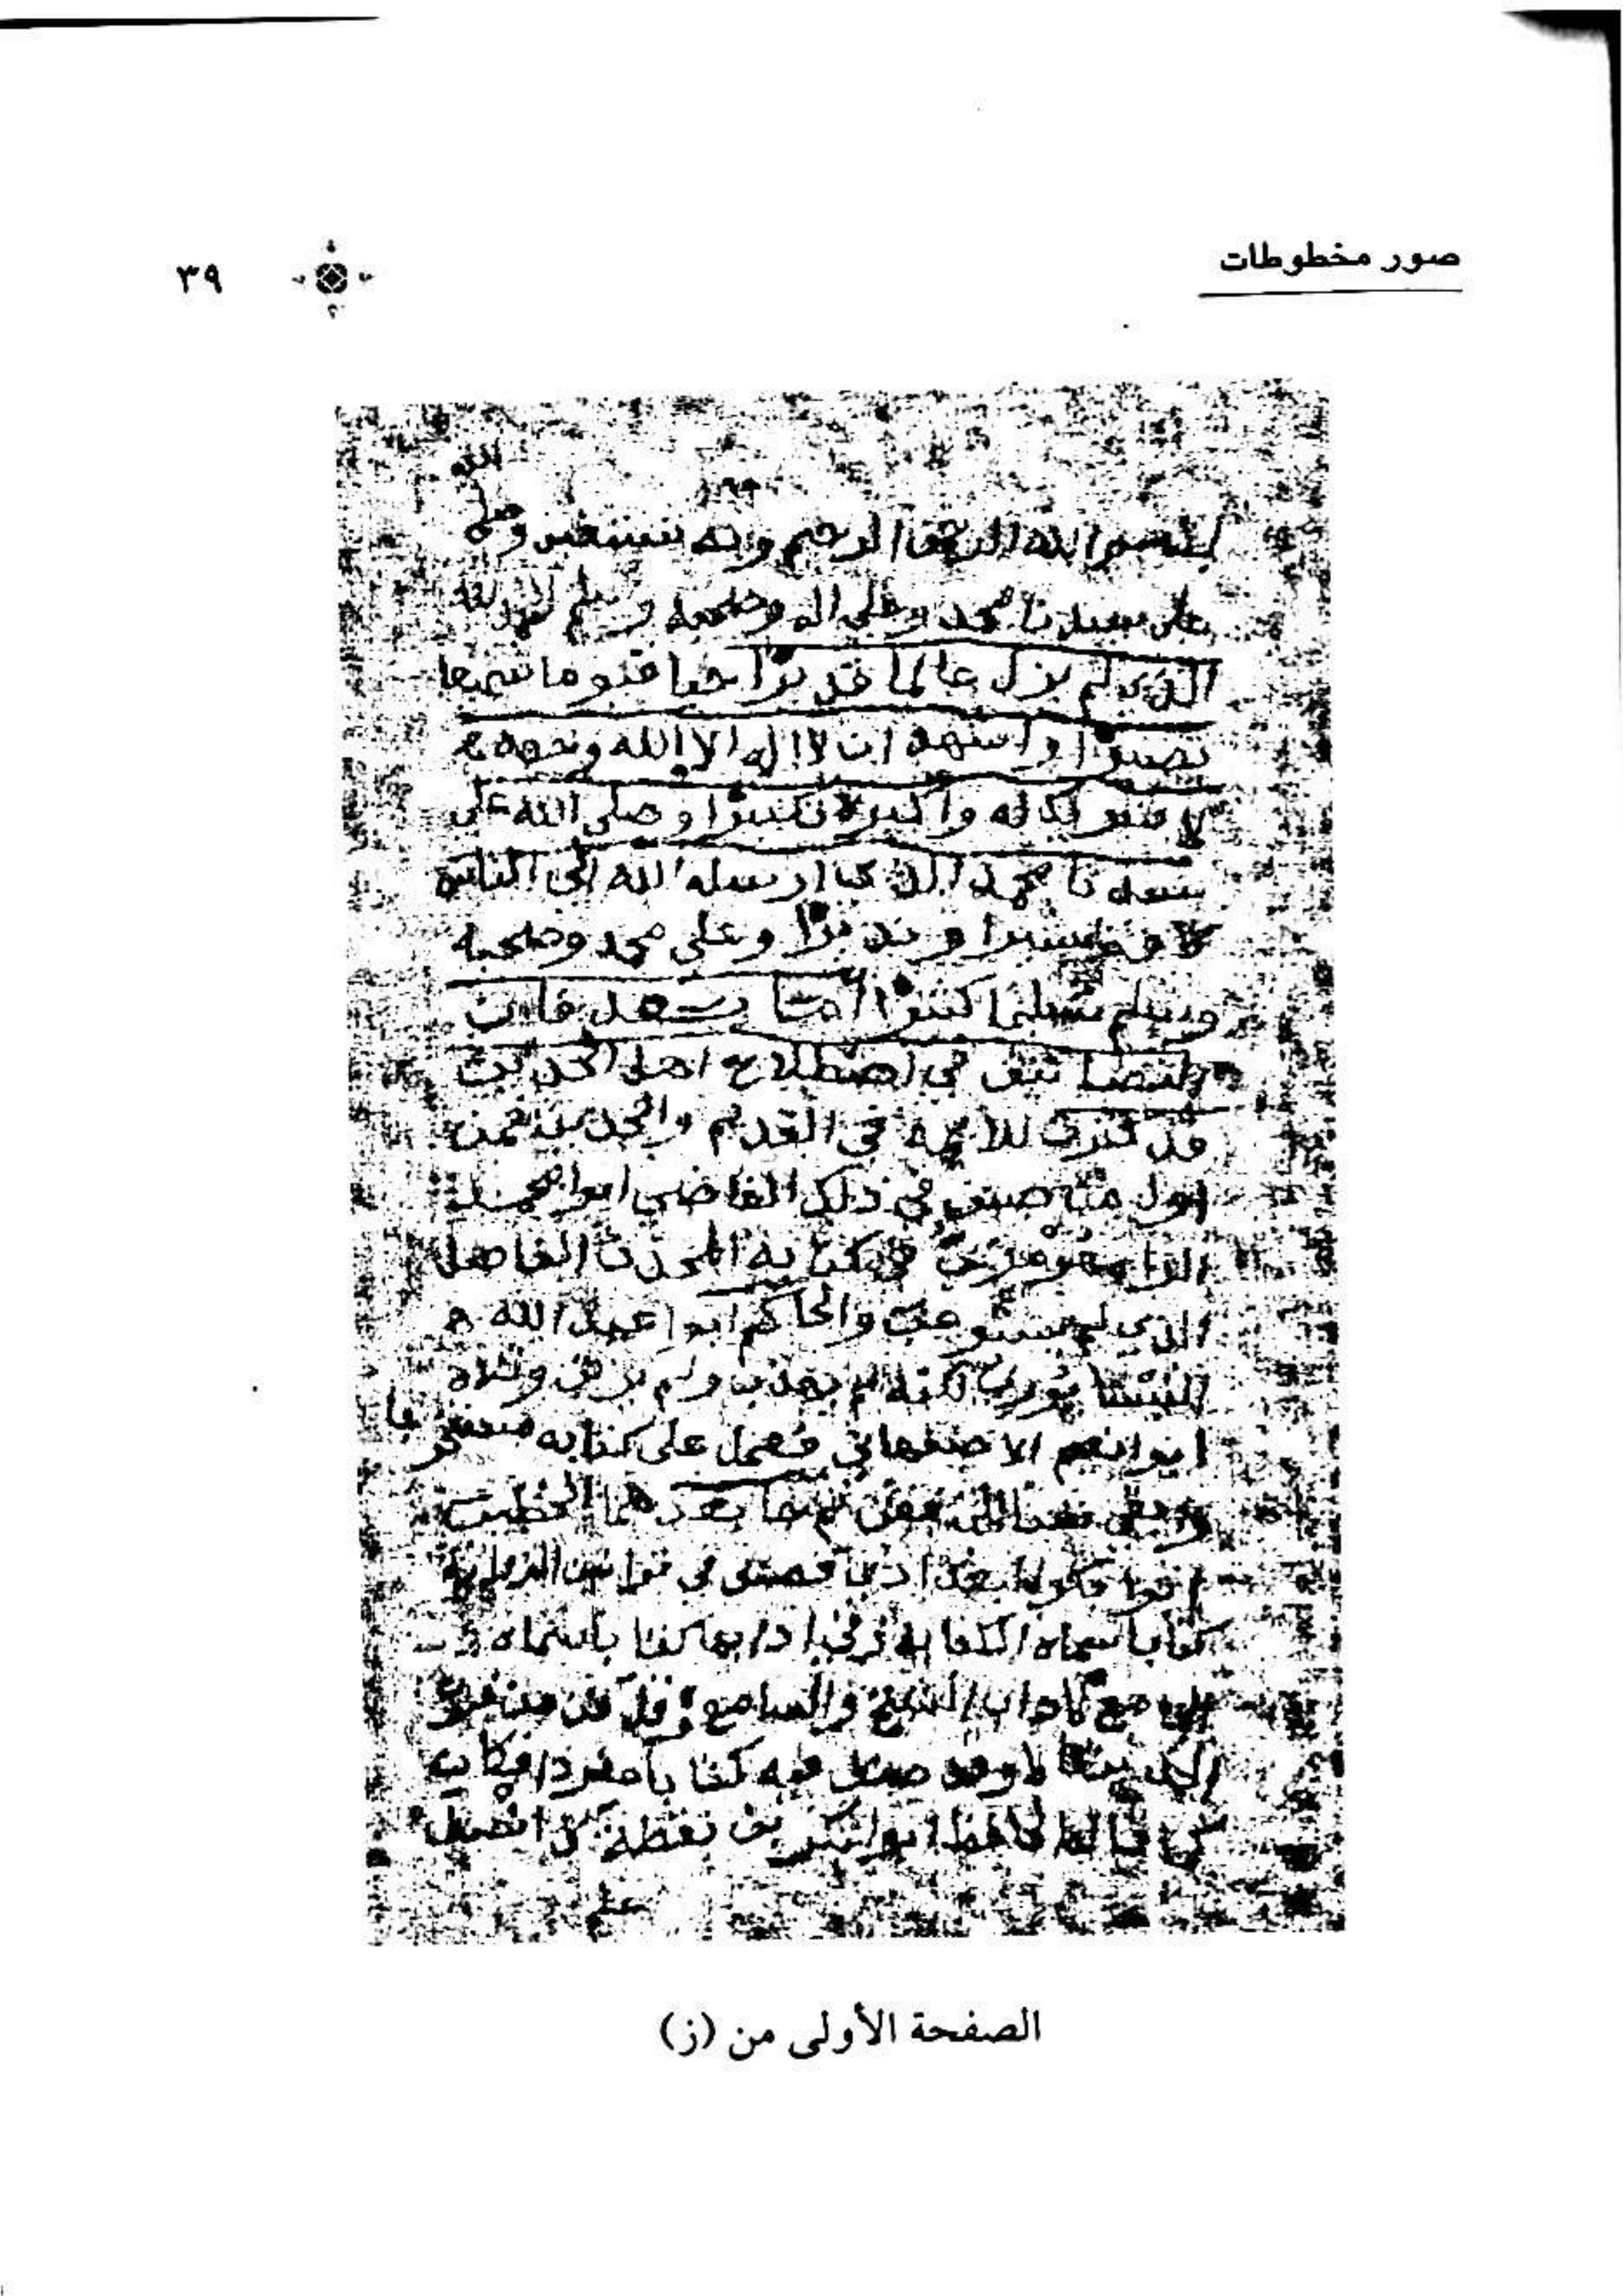 صور مخطوطات
٣٩
الله
بسم الله الرحمن الرحيم وبه نستعين وصلى
على سيدنا محمد وعلى اله وصحبه وسلم الحمد لله
الذي لم يزل عالما قديرا حيا قيوما سميعا
بصيرا واشهد ان لا اله الا الله وحده
لا شريك له واكبره تكبيرا وصلى الله على
سيدنا محمد الذي ارسله الله الى الناس
كافة بشيرا ونذيرا وعلى محمد وصحبه
وسلم تسليما كثيرا اما بعد فان
التصانيف في اصطلاح اهل الحديث
قد كثرت للائمة في القديم والحديث فمن
اول من صنف في ذلك القاضي ابوا محمد
الرامهرمزي في كتابه المحدث الفاصل
الذي لم يستوعب والحاكم ابوا عبد الله
النيسابوري لكنه لم يهذب ولم يرتب وتلاه
ابوا نعيم الاصفهاني فعمل على كتابه مستخرجا
وابقى للمتعقب ثم جا بعدهما الخطيب
ابوا بكر البغدادي فصنف في قوانين الرواية
كتابا سماه الكفاية وفي ادابها كتابا سماه
الجامع لاداب الشيخ والسامع وقل فن من فنون
الحديث الا وقد صنف فيه كتابا مفردا فكان
كما قال الحافظ ابوا بكر بن نقطة كل انصف
علم
الصفحة الأولى من (ز)